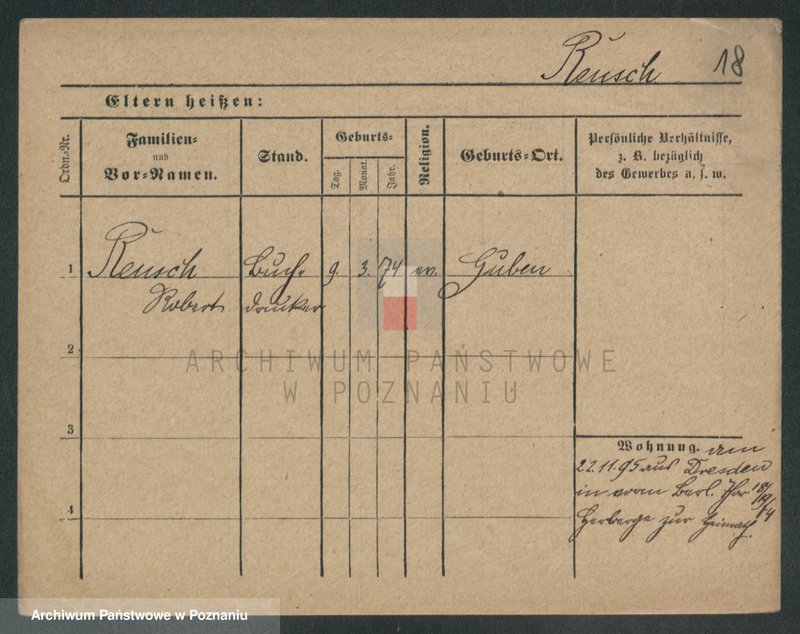 Reusch 18
Eltern heißen:
Ordn.-Nr.
Familien- und Vor-Namen.
Stand.
Geburts-
Tag.
Monat.
Jahr.
Religion.
Geburts-Ort.
Persönliche Verhältnisse,
z. B. bezüglich
des Gewerbes u. s. w.
1 Reusch Buch- 9. 3. 74 ev. Guben
Robert drucker
2
ARCHIWUM PAŃSTWOWE
W POZNANIU
3
Wohnung. am
22.11.95 aus Dresden
in vorm Berl. Thor
Herberge zur Heimath
4
Archiwum Państwowe w Poznaniu